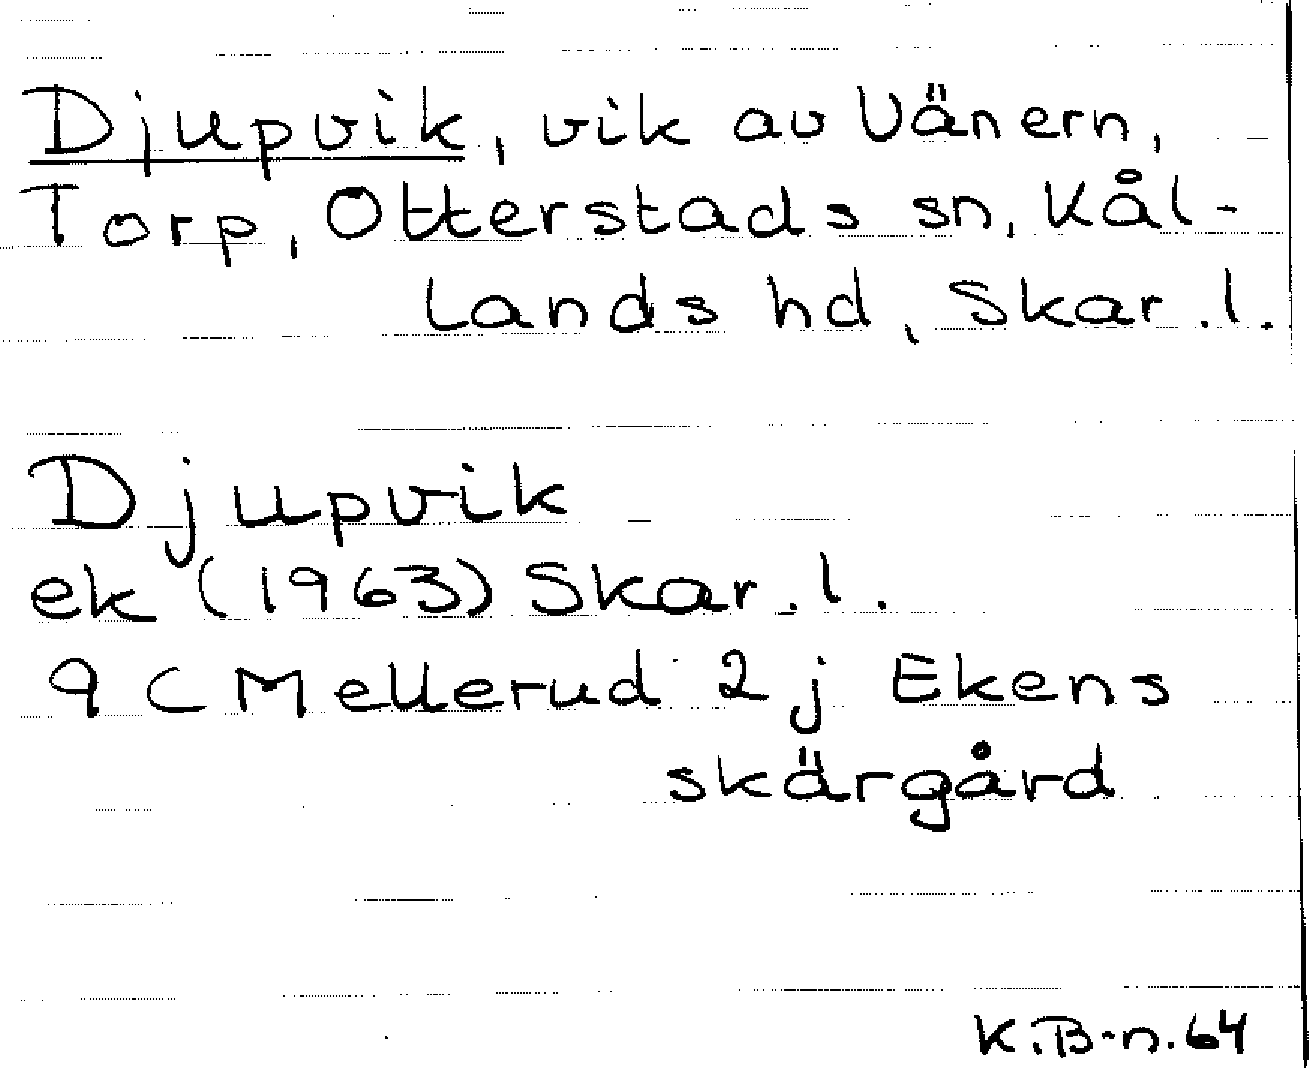 Djupvik, vik av Vänern,
Torp, Otterstads sn, Kål-
lands hd, Skar.l.
Djupvik
ek (1963) Skar.l.
9 C Mellerud 2 j Ekens
skärgård
K.B-n.64